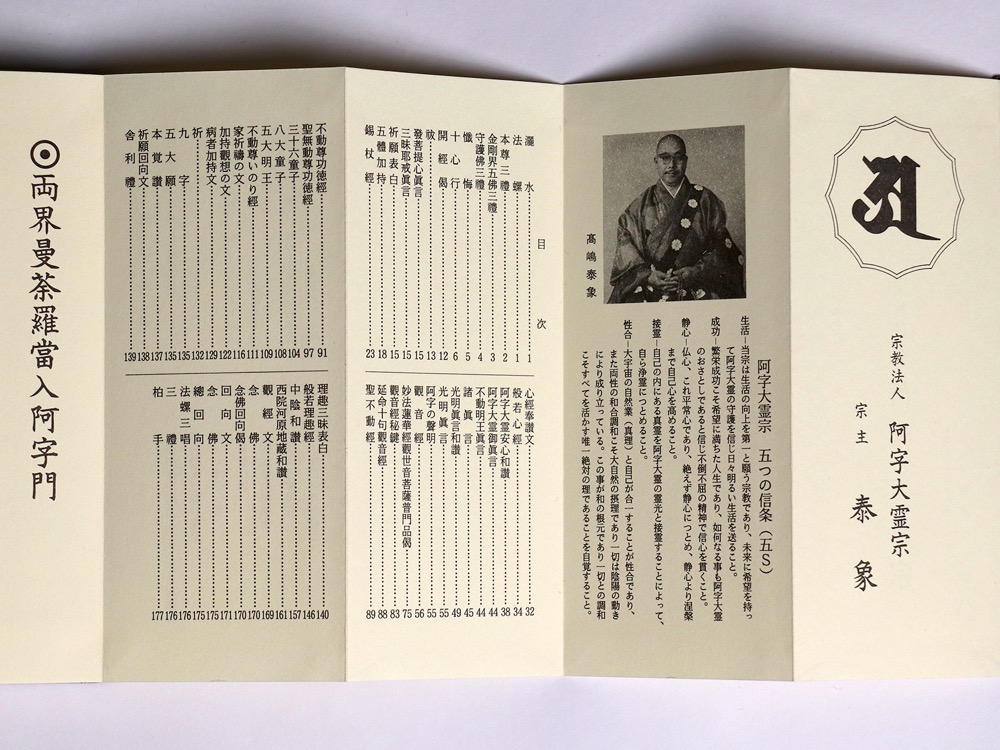 ア
宗教法人　阿字大霊宗
宗主　泰象
阿字大霊宗　五つの信条（五S）
生活―当宗は生活の向上を第一と願う宗教であり、未来に希望を持っ
て阿字大霊の守護を信じ日々明るい生活を送ること。
成功―繁栄成功こそ希望に満ちた人生であり、如何なる事も阿字大霊
のおさとしであると信じ不倒不屈の精神で信心を貫くこと。
静心―仏心、これ平常心であり、絶えず静心につとめ、静心より涅槃
まで自己心を高めること。
接霊―自己の内にある真霊を阿字大霊の霊光と接霊することによって、
自ら浄霊につとめること。
性合―大宇宙の自然業（真理）と自己が合一することが性合であり、
また両性の和合調和こそ大自然の摂理であり一切は陰陽の動き
により成り立っている。この事が和の根元であり一切との調和
こそすべてを活かす唯一絶対の理であることを自覚すること。
髙嶋泰象
目次
灑水……1
法螺……1
本尊三禮……2
金剛界五佛三禮……2
守護佛三禮……4
懺悔……5
十心行……6
開經偈……12
祓……13
發菩提心眞言……15
三昧耶戒眞言……15
祈願表白……15
五體加持……18
錫杖經……23
心經奉讃文……32
般若心經……34
阿字大霊安心和讃……38
阿字大霊御眞言……44
不動明王眞言……44
諸眞言……45
光明眞言和讃……49
光明眞言……55
阿字の聲明……55
觀音經……56
妙法蓮華經觀世音菩薩普門品偈……75
觀音經秘鍵……83
延命十句觀音經……88
聖不動經……89
不動尊功徳經……91
聖無動尊功徳經……97
三十六童子……104
八大童子……108
五大明王……109
不動尊いのり經……111
家祈禱の文……116
加持觀想の文……122
病者加持文……129
祈……132
九字……135
五大願……135
本覚讃……137
祈願回向文……138
舎利禮……139
理趣三昧表白……140
般若理趣經……146
中陰和讃……157
西院河原地蔵和讃……161
觀經文……169
念佛……170
念佛回向偈……170
回向文……171
念佛……175
總回向……175
法螺三唱……176
三禮……176
柏手……177
◎両界曼荼羅當入阿字門